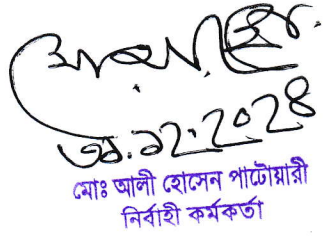 ৩১.১২.২০২৪
মোঃ আলী হোসেন পাটোয়ারী
নির্বাহী কর্মকর্তা